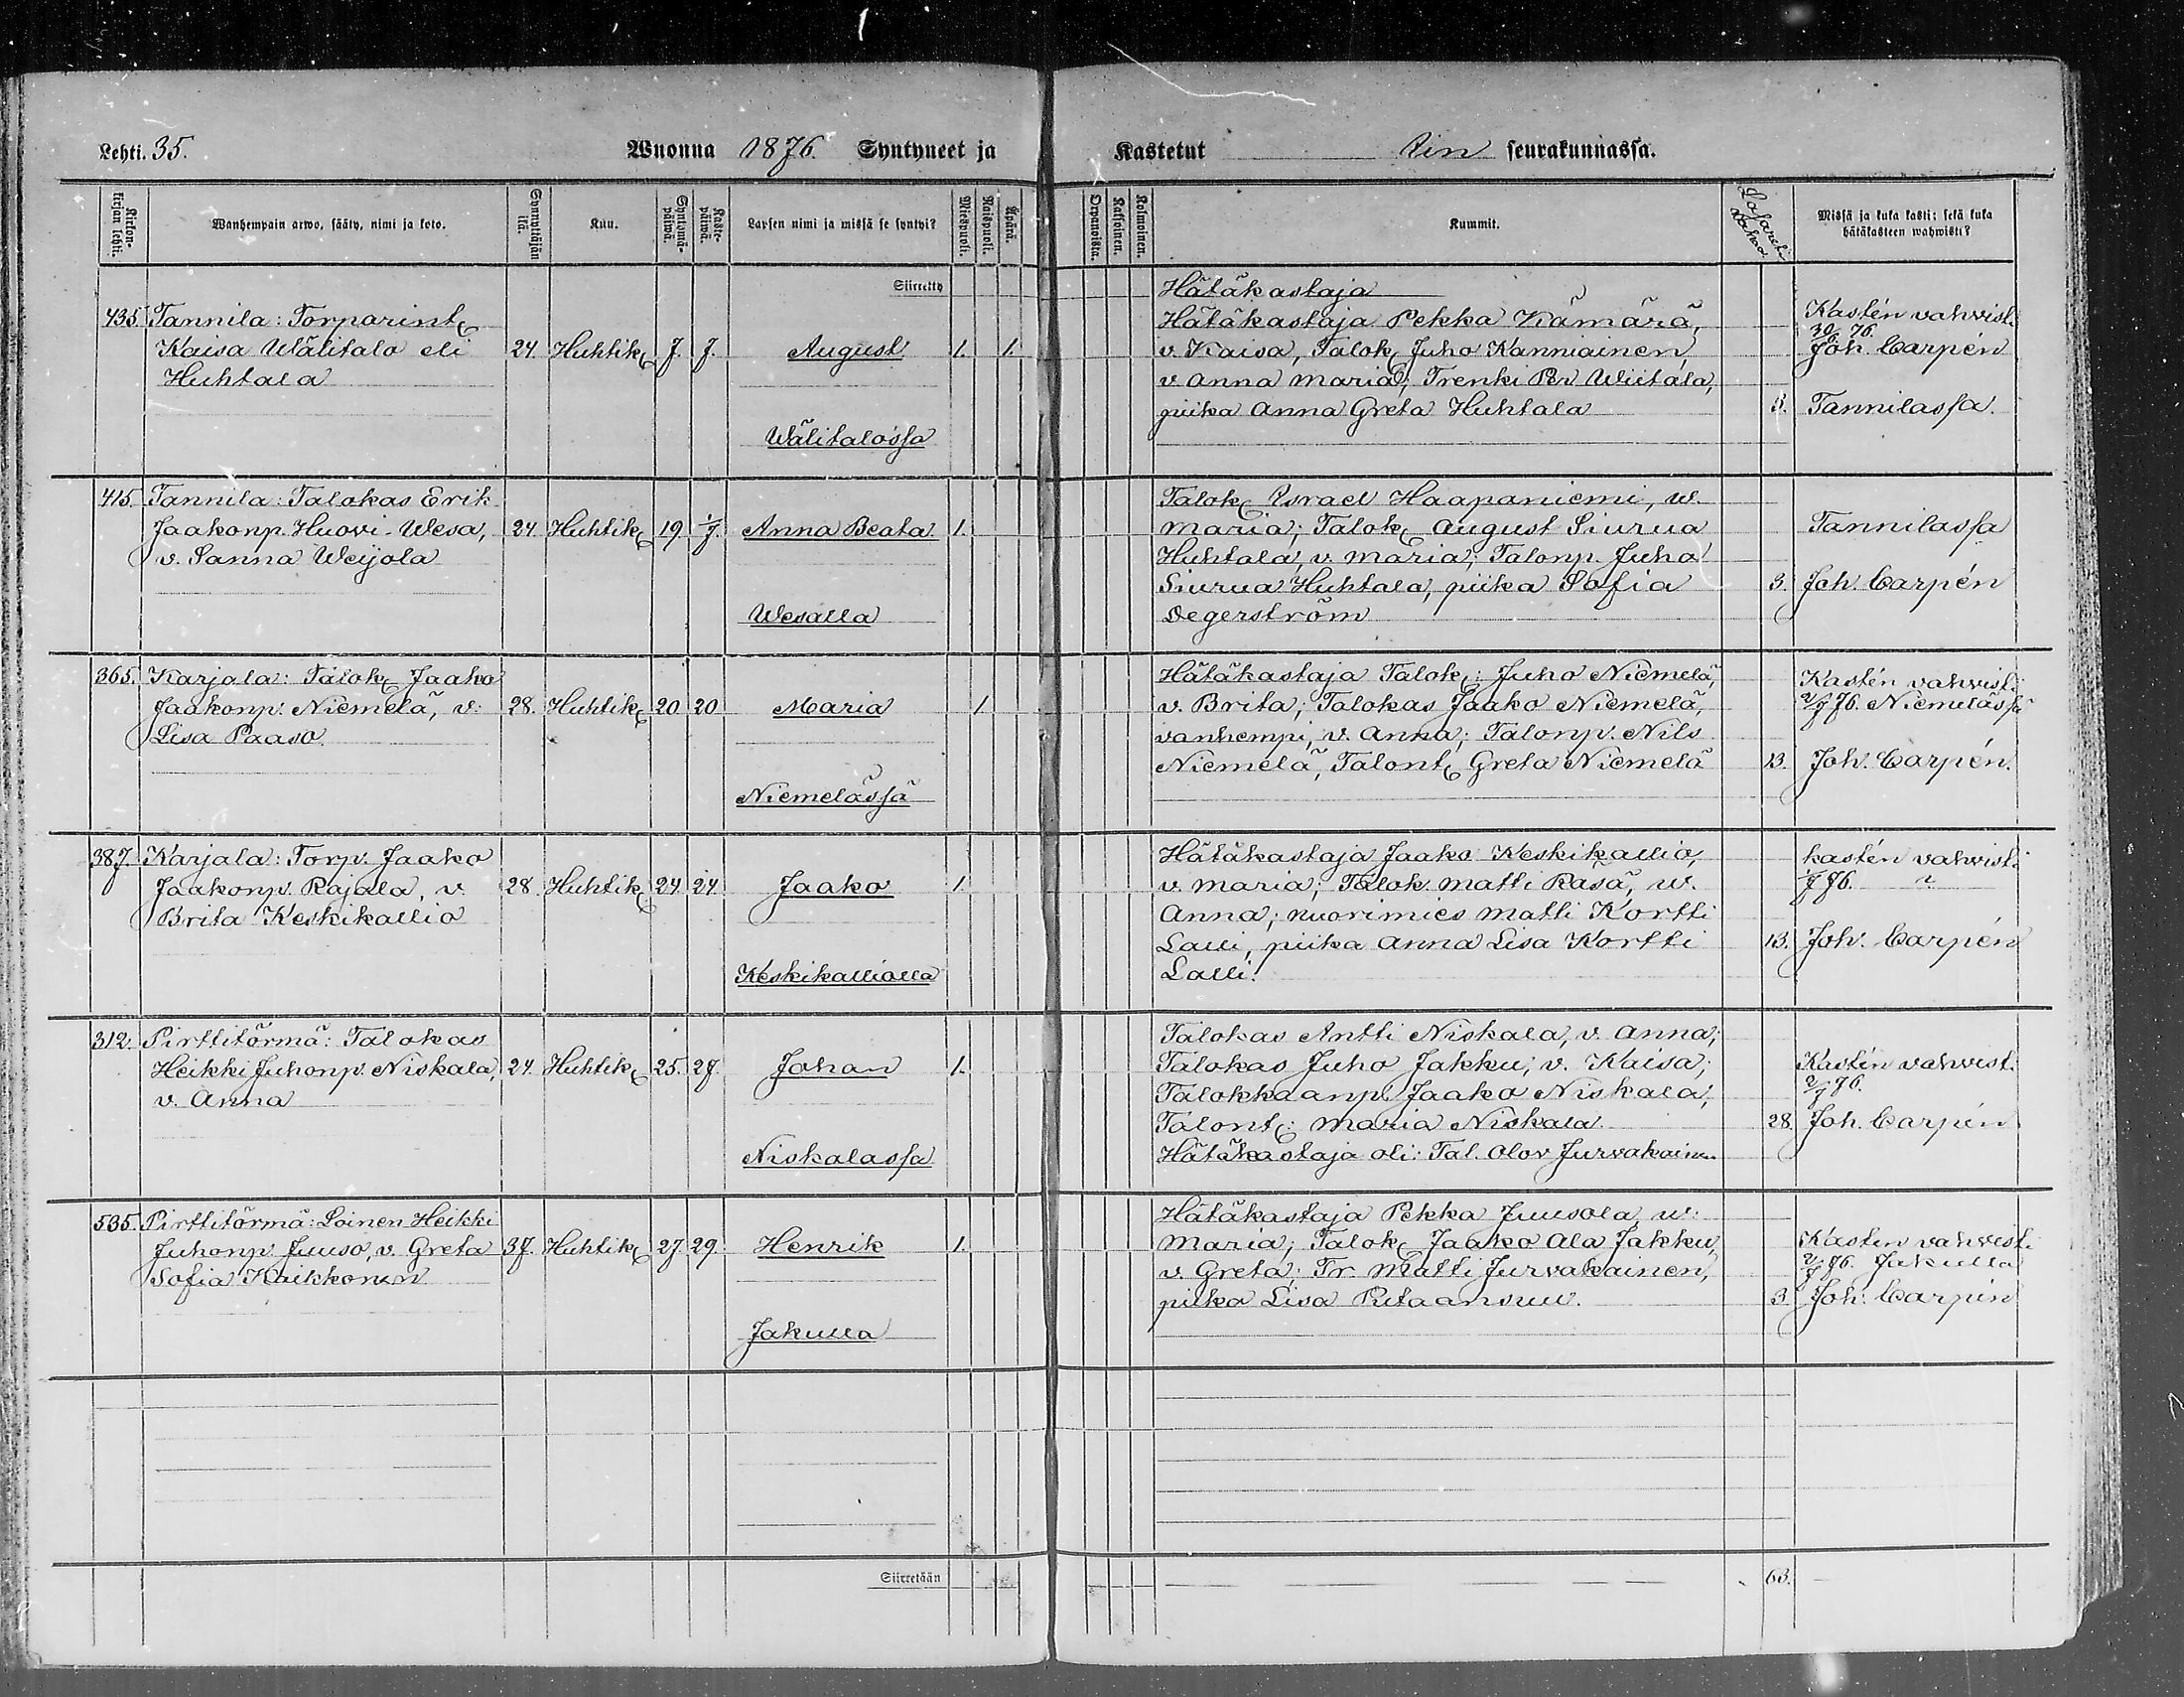 Lehti. 35. Wuonna 1876. Syntyneet ja Kastetut Iin seurakunnassa.
Kirkonkirjan lehti.
Wanhempain arwo, sääty, nimi ja koto.
Synnyttäjän ikä.
Kuu.
Syntymäpäiwä.
Kastepäiwä.
Lapsen nimi ja missä se syntyi?
Miespuoli.
Naispuoli.
Äpärä.
Orpanoista.
Kaksoinen.
Kolmoinen.
Kummit.
Lasareti
Missä ja kuka kasti; sekä kuka
hätäkasteen wahwisti?
Siirretty
435. Tannila: Torparint.
Kaisa Wälitalo eli
Huhtala
24. Huhtik. 7. 7. August 1. 1.
Wälitalossa
Hätäkastaja
Hätäkastaja Pekka Kämärä,
v. Kaisa, Talok. Juho Kanniainen,
v. Anna Maria; Trenki Per Wiitala,
piika Anna Greta Huhtala
3.
Kastén vahvisti
30/6 76.
Joh. Carpén
Tannilassa.
415. Tannila: Talokas Erik
Jaakonp. Huovi-Wesa,
v. Sanna Weijola
24. Huhtik. 19. 1/7. Anna Beata. 1.
Wesalla
Talok. Israel Haapaniemi, w.
Maria; Talok. August Siurua
Huhtala, v. Maria; Talonp. Juho
Siurua Huhtala, piika Sofia
Degerström
3.
Tannilassa
Joh. Carpén
365. Karjala: Talok. Jaako
Jaakonp. Niemelä, v:
Lisa Paaso.
28. Huhtik. 20 20 Maria 1.
Niemelässä
Hätäkastaja Talok: Juho Niemelä,
v. Brita; Talokas Jaako Niemelä,
vanhempi, v. Anna; Talonp. Nils
Niemelä, Talont. Greta Niemelä
13.
Kastén vahvisti
2/7 76. Niemelässä
Joh. Carpén.
387. Karjala: Torp. Jaako
Jaakonp. Rajala, v.
Brita Keskikallio
28. Huhtik. 24 24. Jaako 1.
Keskikalliolla
Hätäkastaja Jaako Keskikallio,
v. Maria; Talok. Matti Rasa, w.
Anna; nuorimies Matti Kortti
Lalli, piika Anna Lisa Kortti
Lalli.
13.
kastén vahvisti
/7 76.
Joh. Carpén
312. Pirttitörmä: Talokas
Heikki Juhonp. Niskala,
v. Anna
24. Huhtik. 25. 27. Johan 1.
Niskalassa
Talokas Antti Niskala, v. Anna;
Talokas Juho Jakku; v. Kaisa;
Talokkaanp. Jaako Niskala;
Talont: Maria Niskala.
Hätäkastaja oli: Tal. Olov Jurvakainen
28.
Kastén vahvisti
2/7 76.
Joh. Carpén
535. Pirttitörmä: Loinen Heikki
Juhonp. Juuso, v. Greta
Sofia Kaikkonen
37. Huhtik. 27. 29. Henrik 1.
Jakulla
Hätäkastaja Pekka Juusola, w:
Maria; Talok. Jaako Ala Jakku,
v. Greta; Tr. Matti Jurvakainen,
piika Lisa Putaansuu.
3.
Kasten vahvisti
2/7 76. Jakulla
Joh. Carpén
Siirretään
63.